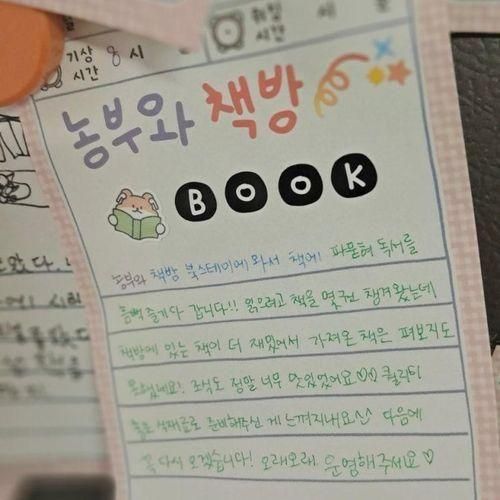 기상 8시
시간
취침 시
시간
농부와 책방
BOOK
농부와 책방 북스테이에 와서 책에 파묻혀 독서를
듬뿍 즐기다 갑니다!! 읽으려고 책을 몇권 챙겨왔는데
책방에 있는 책이 더 재밌어서 가져온 책은 펴보지도
못했네요! 조식도 정말 너무 맛있었어요♡♡ 퀄리티
좋은 식재료로 준비해주신 게 느껴지네요^^ 다음에
꼭 다시 오겠습니다! 오래오래 운영해주세요♡